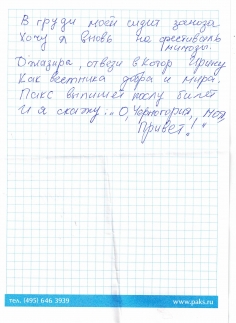 В груди моей сидит заноза
Хочу я вновь на фестиваль
мимозы.
отвези в Котор Ирину
Как вестника добра и мира.
Пакс выпишет билет
И я скажу: „О, Черногория, моя,
Привет!"
тел. (495) 646 3939
www.paks.ru